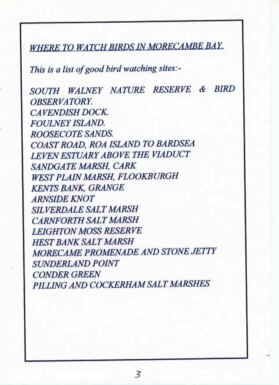 WHERE TO WATCH BIRDS IN MORECAMBE BAY.
This is a list of good bird watching sites:-
SOUTH WALNEY NATURE RESERVE & BIRD
OBSERVATORY.
CAVENDISH DOCK.
FOULNEY ISLAND.
ROOSECOTE SANDS.
COAST ROAD, ROA ISLAND TO BARDSEA
LEVEN ESTUARY ABOVE THE VIADUCT
SANDGATE MARSH, CARK
WEST PLAIN MARSH, FLOOKBURGH
KENTS BANK, GRANGE
ARNSIDE KNOT
SILVERDALE SALT MARSH
CARNFORTH SALT MARSH
LEIGHTON MOSS RESERVE
HEST BANK SALT MARSH
MORECAME PROMENADE AND STONE JETTY
SUNDERLAND POINT
CONDER GREEN
PILLING AND COCKERHAM SALT MARSHES
3